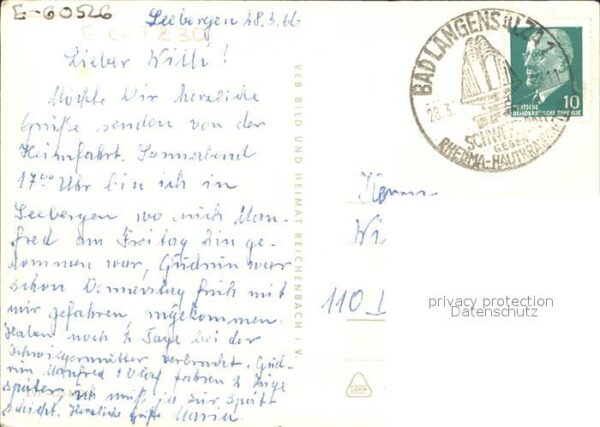 E-60526
Seebergen 28.3.66
Lieber Willi!
Möchte Dir herzliche
Grüße senden von der
Heimfahrt. Sonnabend
17⁰⁰ Uhr bin ich in
Seebergen wo mich Man-
fred am Freitag hinge-
kommen war, Gudrun war
schon Donnerstag früh mit
mir gefahren, angekommen.
Haben noch ½ Tage bei der
Schwiegermutter verbracht. Gud-
run Manfred + Olaf fahren 2 Tage
später ich muß ja zur Spät-
schicht. Herzliche Grüße Maria.
VEB BILD UND HEIMAT REICHENBACH I. V.
BAD LANGENSALZA 1
28.3.
SCHWEFEL
GEGEN
RHEUMA-HAUT
DEUTSCHE
DEMOKRATISCHE REPUBLIK
10
Herrn
Wi
110
privacy protection
Datenschutz